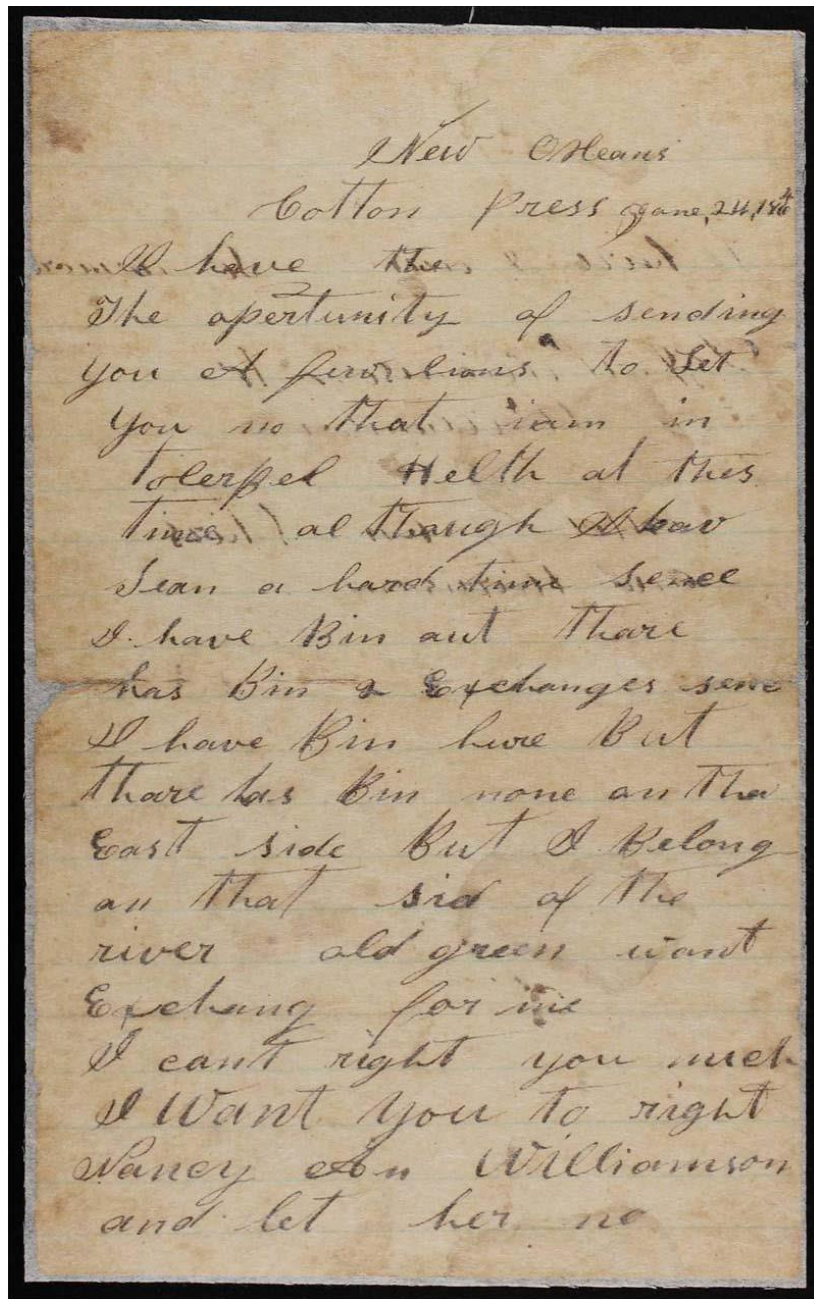 New Orleans
Cotton Press Jane, 24, 1864
I have the
The opertunity of sending
you A few lians to Let
you no that iam in
tolerbel Helth at this
time al though I hav
Sean a hard time sence
I have Bin aut thare
has Bin 2 Exchanges senc
I have Bin hure But
thare has Bin none on the
East side But I Belong
on that sid of the
river old green wont
Exchang for me
I cant right you much
I Want you to right
Nancy An Williamson
and let her no